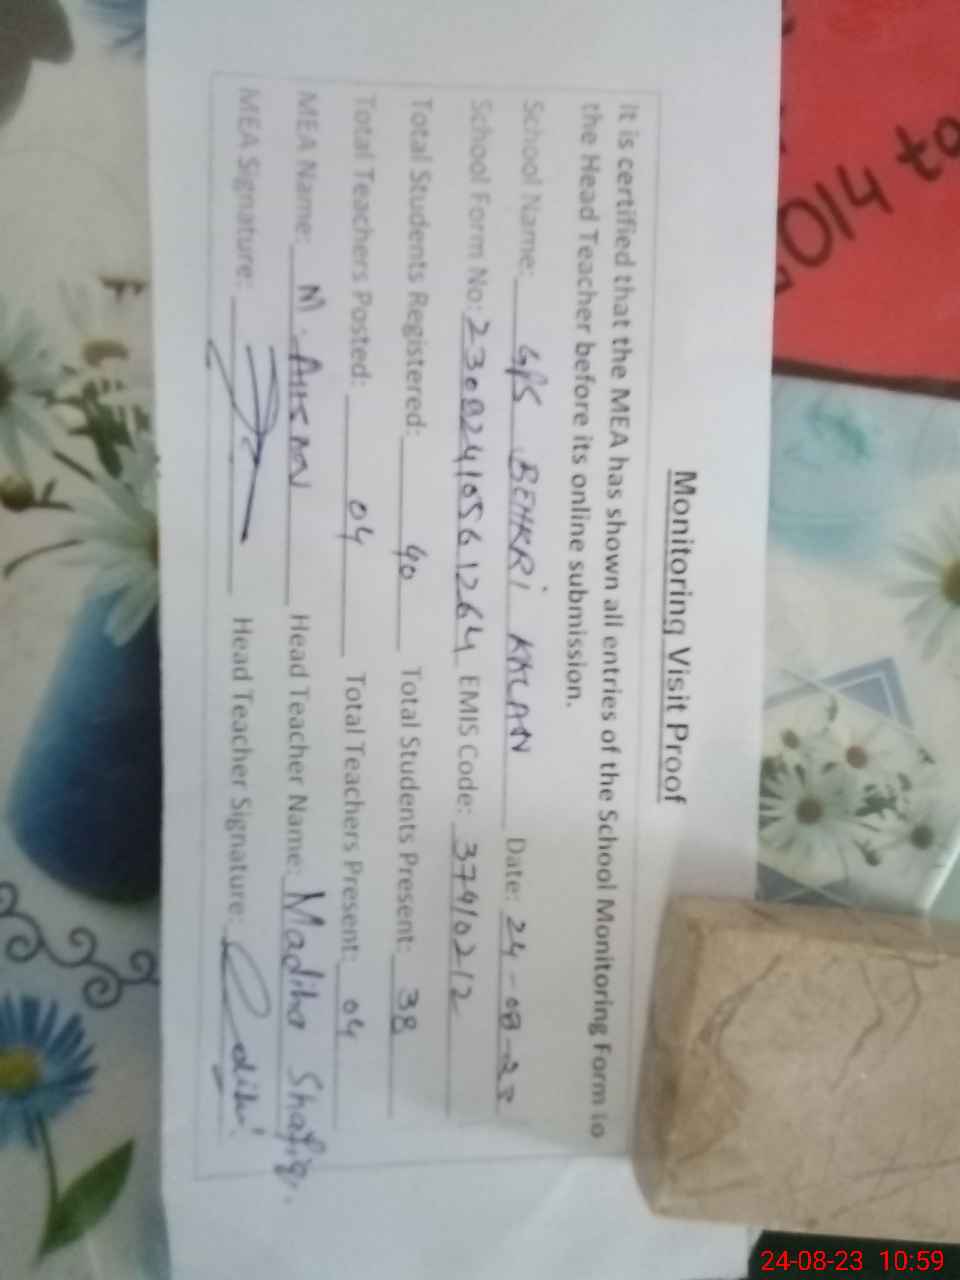 Monitoring Visit Proof
It is certified that the MEA has shown all entries of the School Monitoring Form to
the Head Teacher before its online submission.
School Name: GPS BEHKRI KALAN Date: 24-08-23
School Form No: 23082410561264 EMIS Code: 37410212
Total Students Registered: 40 Total Students Present: 38
Total Teachers Posted: 04 Total Teachers Present: 04
MEA Name: M. AHSAN Head Teacher Name: Madiha Shafiq.
MEA Signature: Head Teacher Signature:
2014 to
24-08-23 10:59